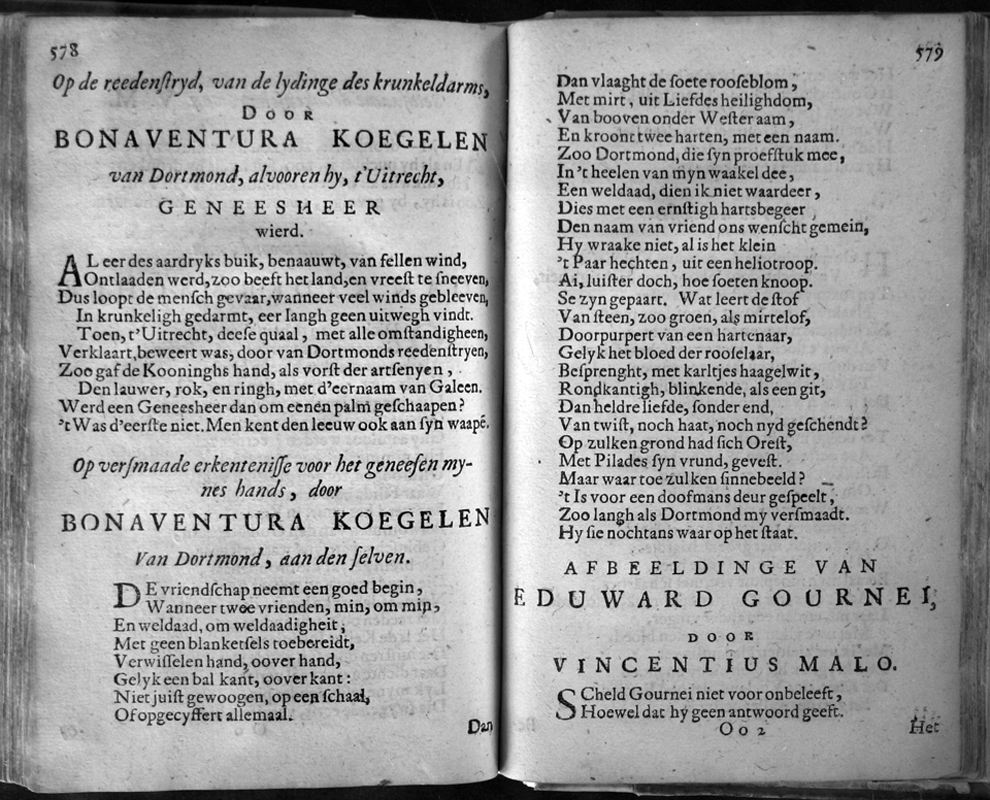 578
Op de reedenſtryd, van de lydinge des krunkeldarms,
DOOR
BONAVENTURA KOEGELEN
van Dortmond, alvooren hy, t'Uitrecht,
GENEESHEER
wierd.
AL eer des aardryks buik, benaauwt, van fellen wind,
Ontlaaden werd, zoo beeft het land, en vreeſt te ſneeven,
Dus loopt de menſch gevaar, wanneer veel winds gebleeven,
In krunkeligh gedarmt, eer langh geen uitwegh vindt.
Toen, t'Uitrecht, deeſe quaal, met alle omſtandigheen,
Verklaart, beweert was, door van Dortmonds reedenſtryen,
Zoo gaf de Kooninghs hand, als vorſt der artſenyen,
Den lauwer, rok, en ringh, met d'eernaam van Galeen.
Werd een Geneesheer dan om eenen palm geſchaapen?
't Was d'eerſte niet. Men kent den leeuw ook aan ſyn waapẽ.
Op verſmaade erkenteniſſe voor het geneeſen my-
nes hands, door
BONAVENTURA KOEGELEN
Van Dortmond, aan den ſelven.
DE vriendſchap neemt een goed begin,
Wanneer twee vrienden, min, om min,
En weldaad, om weldaadigheit,
Met geen blanketſels toebereidt,
Verwiſſelen hand, oover hand,
Gelyk een bal kant, oover kant:
Niet juiſt gewoogen, op een ſchaal,
Of opgecyffert allemaal.
Dan
579
Dan vlaaght de ſoete rooſeblom,
Met mirt, uit Liefdes heilighdom,
Van booven onder Weſter aam,
En kroont twee harten, met een naam.
Zoo Dortmond, die ſyn proefſtuk mee,
In 't heelen van myn waakel dee,
Een weldaad, dien ik niet waardeer,
Dies met een ernſtigh hartsbegeer
Den naam van vriend ons wenſcht gemein,
Hy wraake niet, al is het klein
't Paar hechten, uit een heliotroop.
Ai, luiſter doch, hoe ſoeten knoop.
Se zyn gepaart. Wat leert de ſtof
Van ſteen, zoo groen, als mirtelof,
Doorpurpert van een hartenaar,
Gelyk het bloed der rooſelaar,
Beſprenght, met karltjes haagelwit,
Rondkantigh, blinkende, als een git,
Dan heldre liefde, ſonder end,
Van twiſt, noch haat, noch nyd geſchendt?
Op zulken grond had ſich Oreſt,
Met Pilades ſyn vrund, geveſt.
Maar waar toe zulken ſinnebeeld?
't Is voor een doofmans deur geſpeelt,
Zoo langh als Dortmond my verſmaadt.
Hy ſie nochtans waar op het ſtaat.
AFBEELDINGE VAN
EDUWARD GOURNEI,
DOOR
VINCENTIUS MALO.
SCheld Gournei niet voor onbeleeft,
Hoewel dat hy geen antwoord geeft.
Oo 2
Het